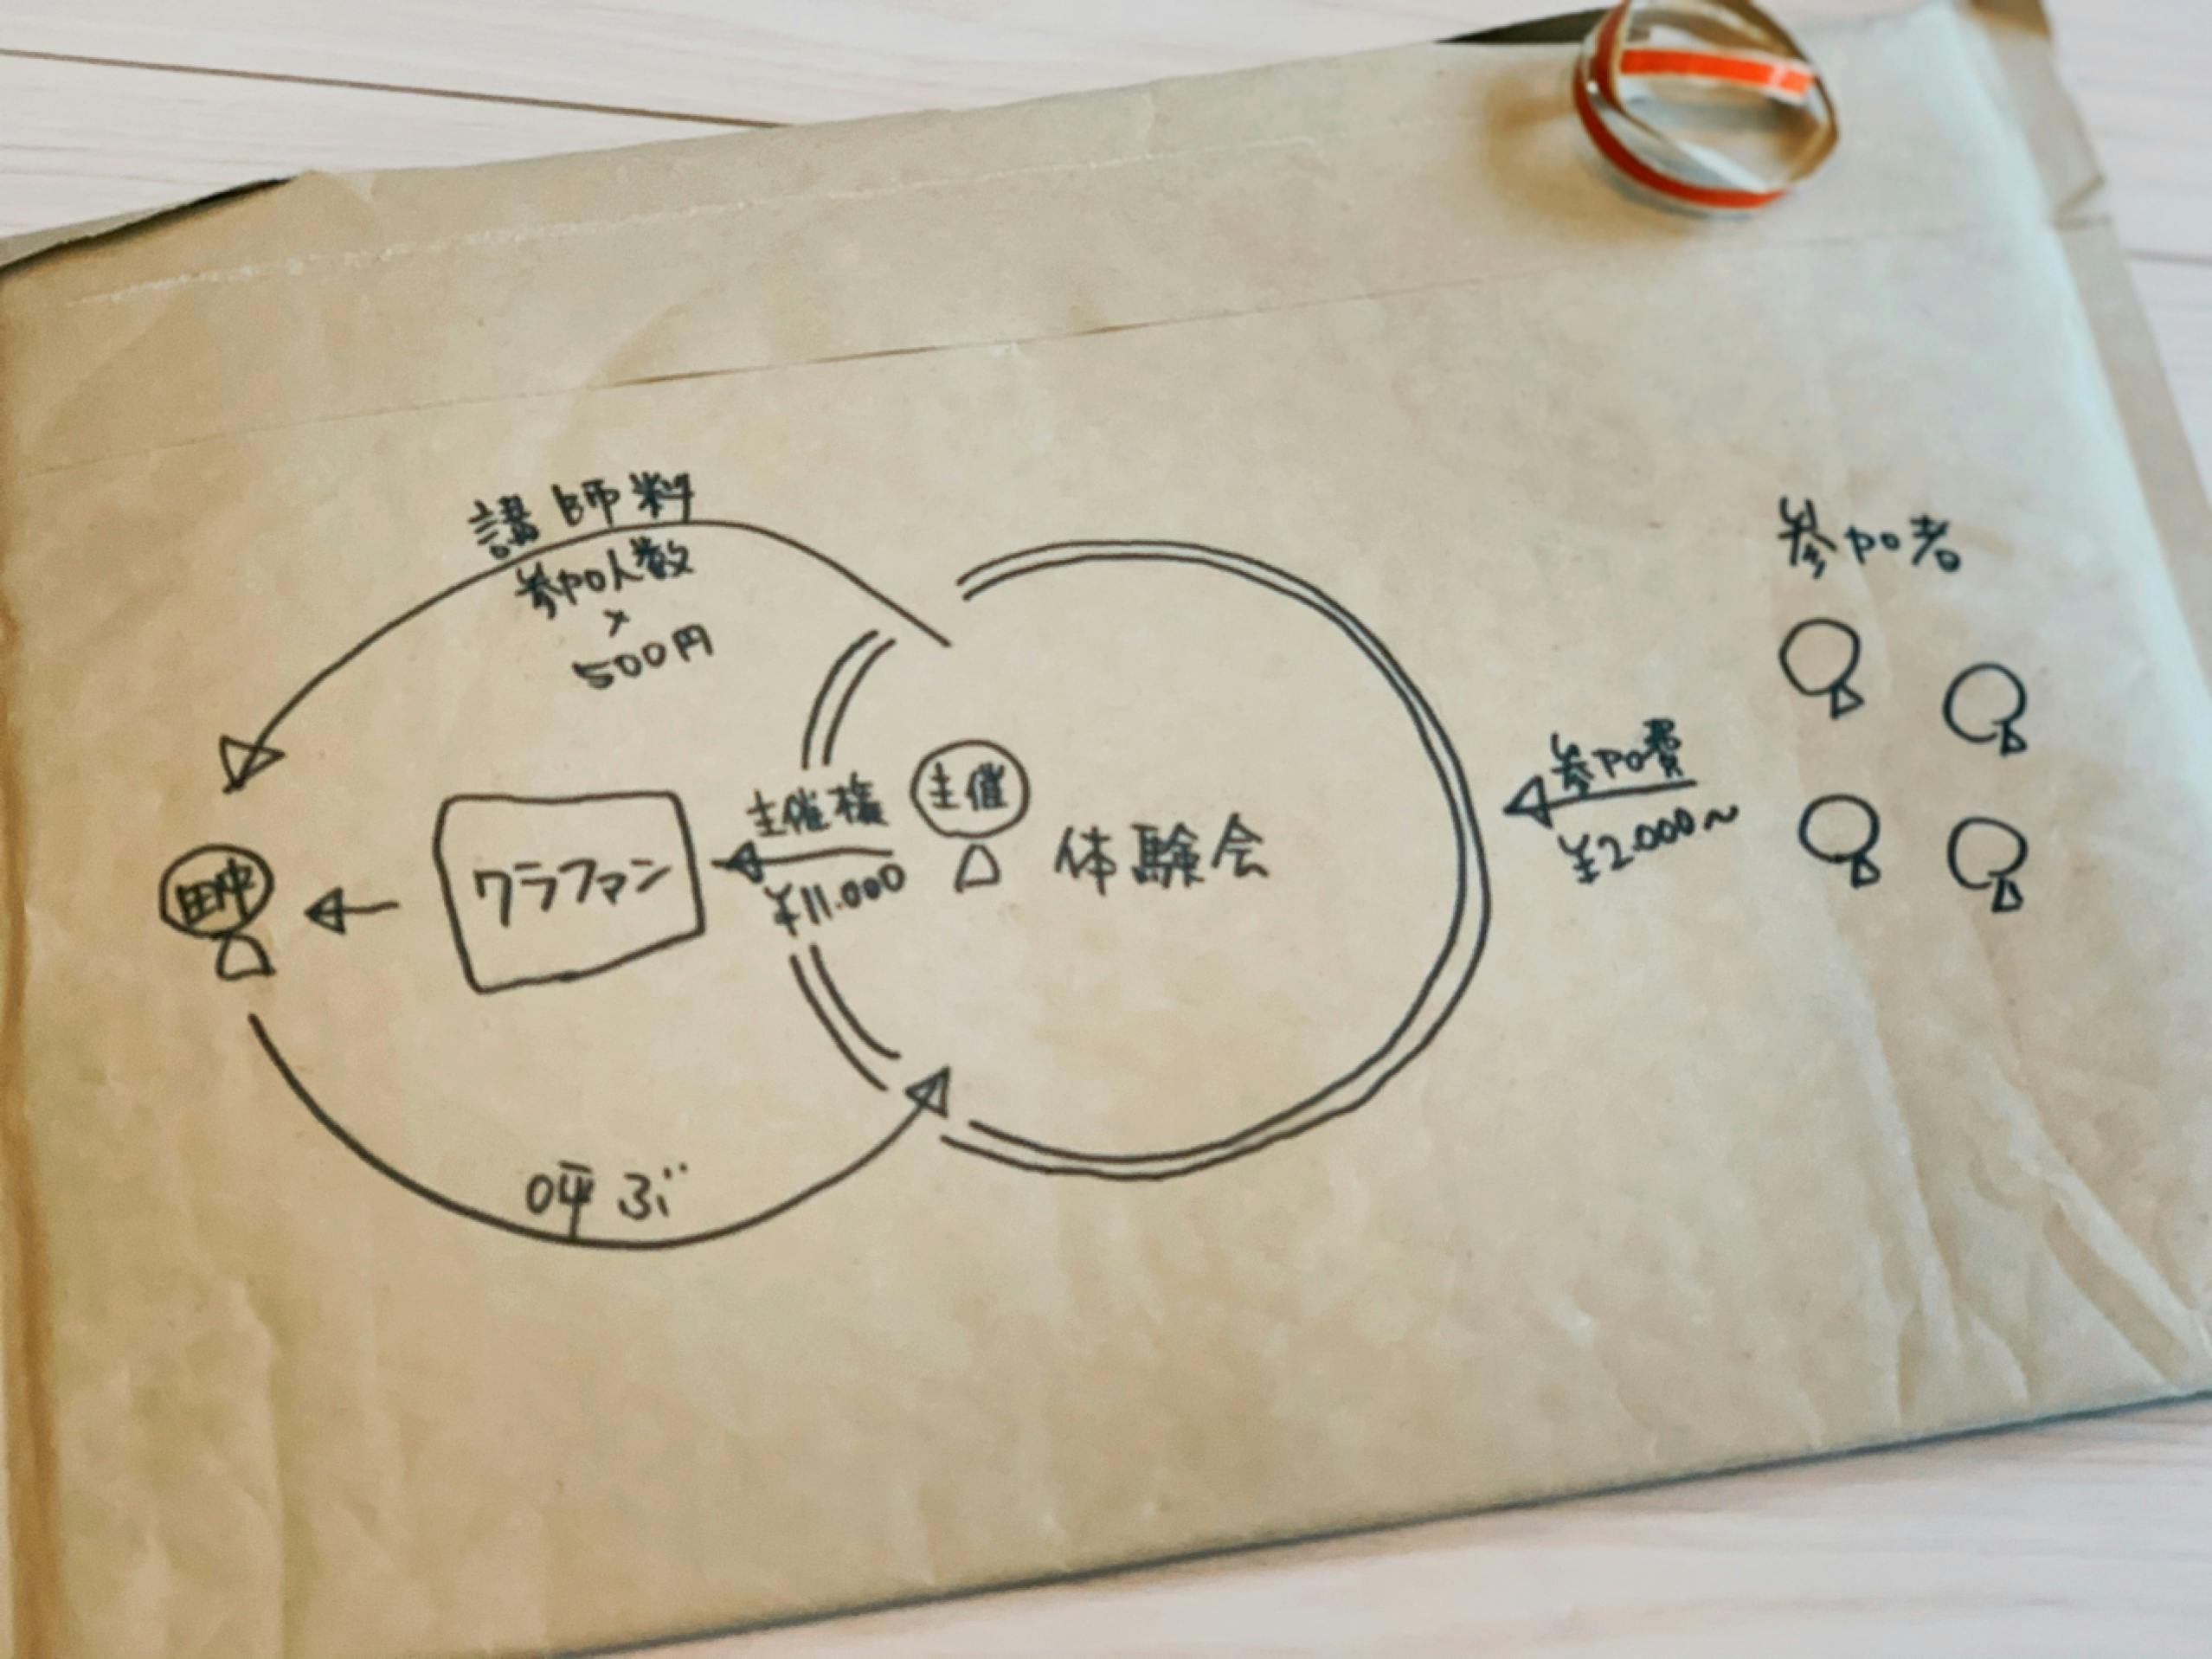 講師料
参加人数
×
500円
参加者
参加費
¥2.000~
主催権
¥11.000
主催
体験会
クラファン
田中
呼ぶ